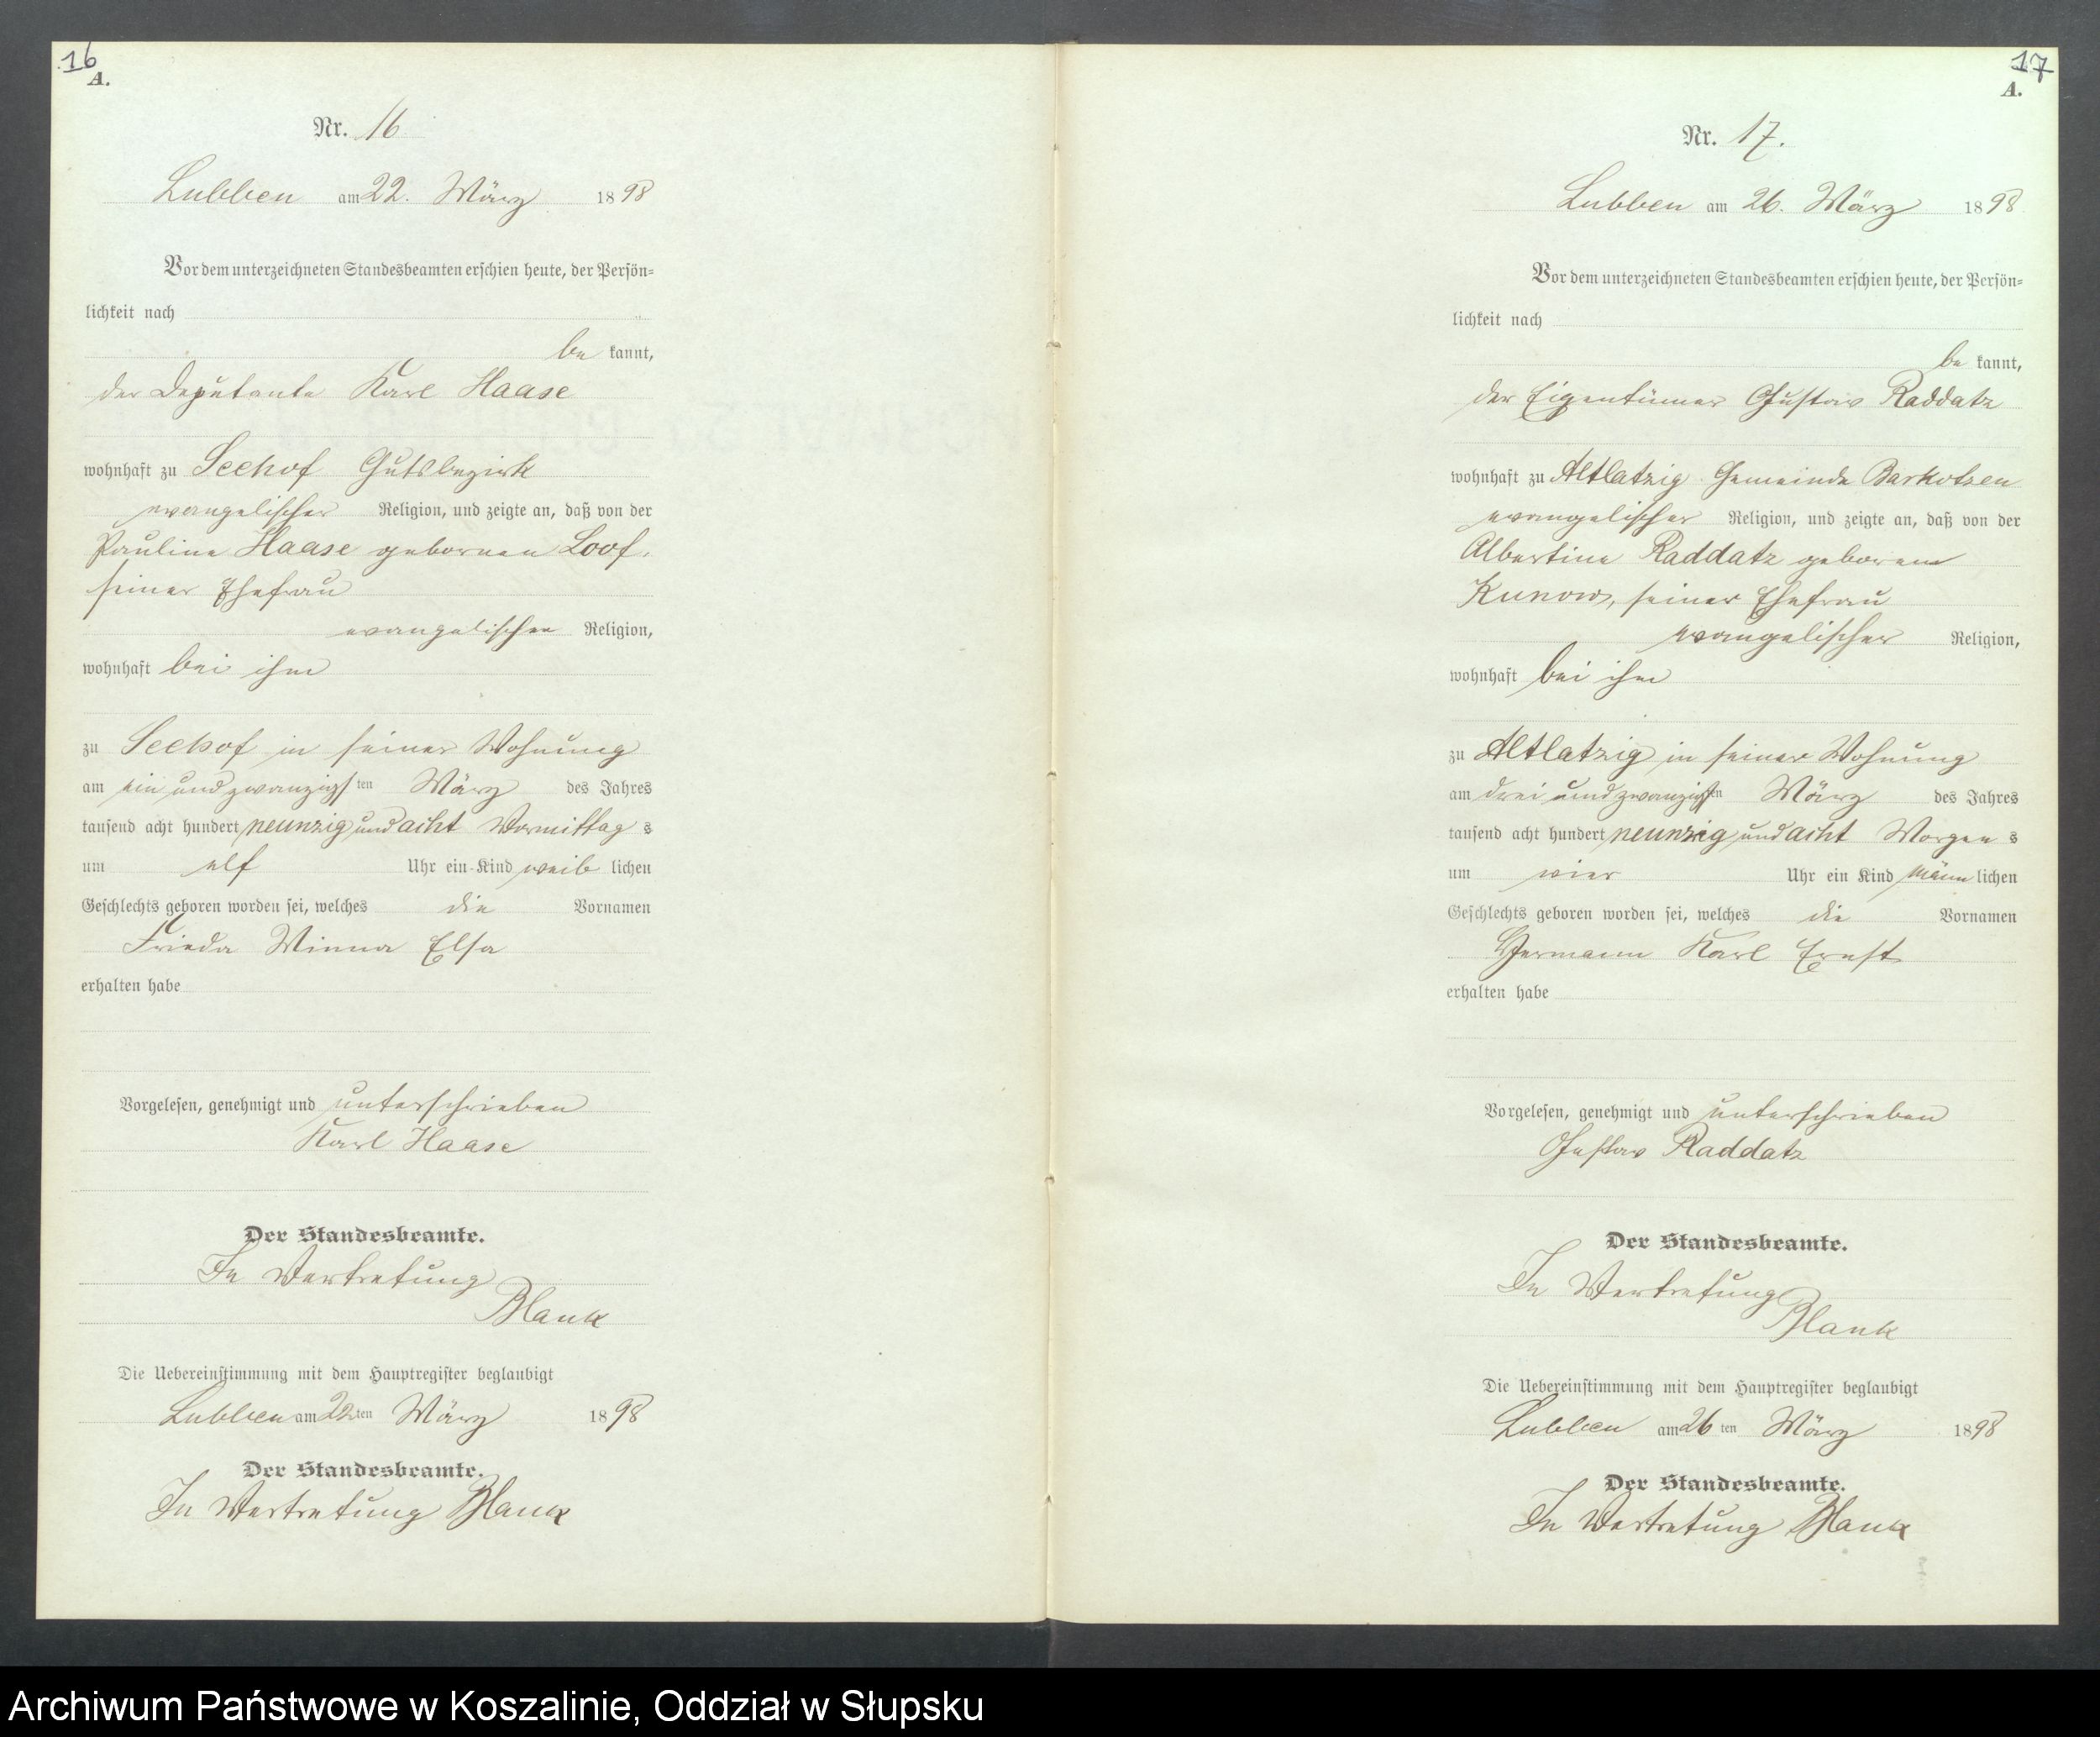 16
A.
Nr. 16
Lubben am 22. März 1898
Vor dem unterzeichneten Standesbeamten erschien heute, der Persön=
lichkeit nach
be kannt,
der Deputante Karl Haase
wohnhaft zu Seehof Gutsbezirk
evangelischer Religion, und zeigte an, daß von der
Pauline Haase gebornen Loof,
seiner Ehefrau
evangelischen Religion,
wohnhaft bei ihm
zu Seehof in seiner Wohnung
am ein und zwanzigsten März des Jahres
tausend acht hundert neunzig und acht Vormittags
um elf Uhr ein Kind weiblichen
Geschlechts geboren worden sei, welches die Vornamen
Frieda Minna Elsa
erhalten habe
Vorgelesen, genehmigt und unterschrieben
Karl Haase
Der Standesbeamte.
In Vertretung
Blank
Die Uebereinstimmung mit dem Hauptregister beglaubigt
Lubben am 22ten März 1898
Der Standesbeamte.
In Vertretung Blank
17
A.
Nr. 17.
Lubben am 26. März 1898
Vor dem unterzeichneten Standesbeamten erschien heute, der Persön=
lichkeit nach
be kannt,
der Eigentümer Gustav Raddatz
wohnhaft zu Altlatzig Gemeinde Barkotzen
evangelischer Religion, und zeigte an, daß von der
Albertine Raddatz geboren
Kunow, seiner Ehefrau
evangelischer Religion,
wohnhaft bei ihm
zu Altlatzig in seiner Wohnung
am drei und zwanzigsten März des Jahres
tausend acht hundert neunzig und acht Morgens
um vier Uhr ein Kind männlichen
Geschlechts geboren worden sei, welches die Vornamen
Hermann Karl Ernst
erhalten habe
Vorgelesen, genehmigt und unterschrieben
Gustav Raddatz
Der Standesbeamte.
In Vertretung
Blank
Die Uebereinstimmung mit dem Hauptregister beglaubigt
Lubben am 26ten März 1898
Der Standesbeamte.
In Vertretung Blank
Archiwum Państwowe w Koszalinie, Oddział w Słupsku